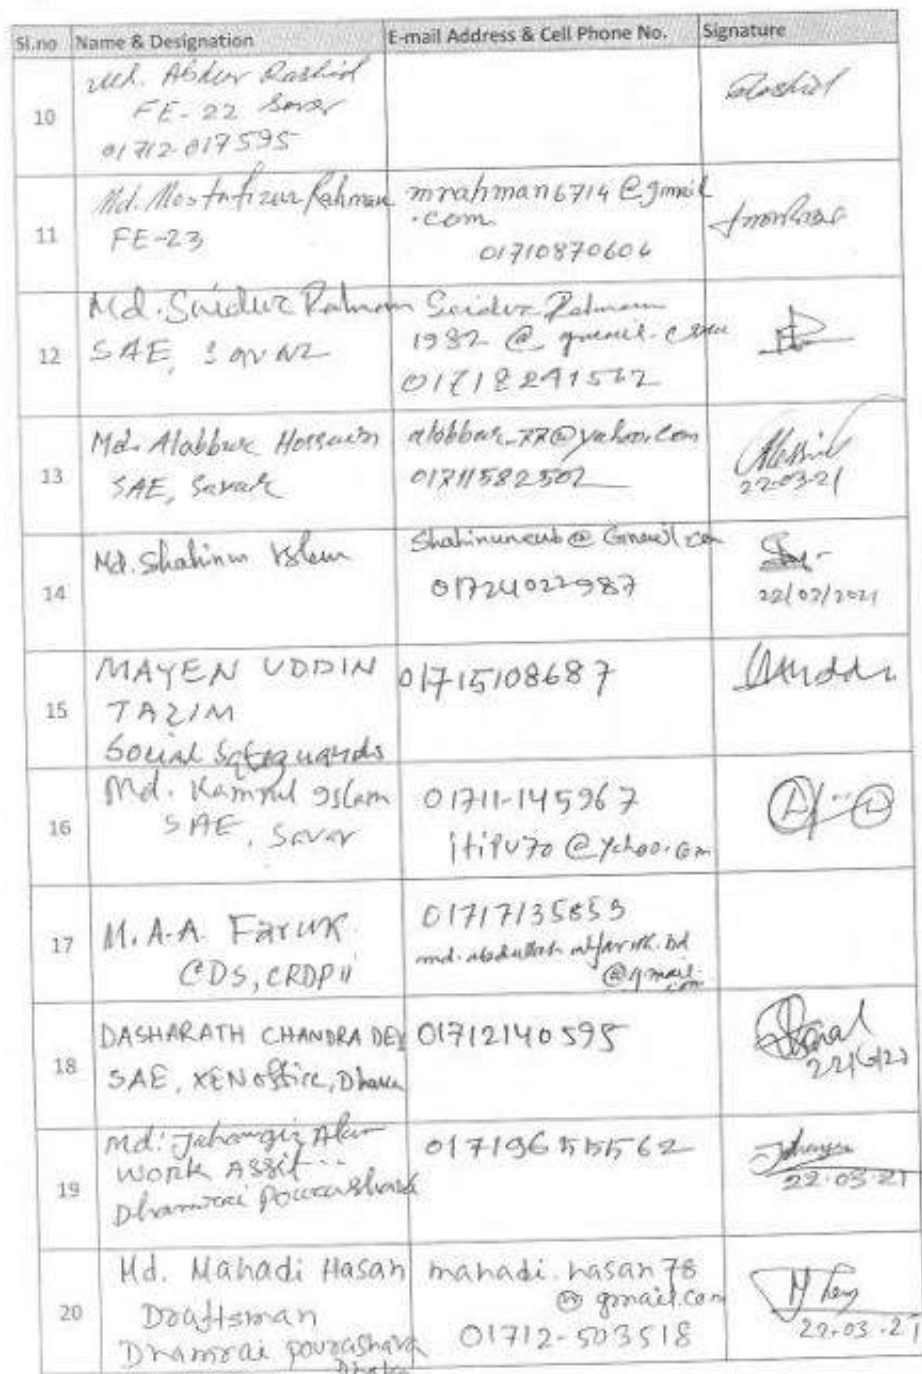 Sl.no Name & Designation E-mail Address & Cell Phone No. Signature
10
Md. Abdur Rashid
FE-22 Savar
01712-017595
Rashid
11
Md. Mostafizur Rahman
FE-23
mrahman6714@gmail
.com
01710870604
12
Md. Saidur Rahman
SAE, Savar
Saidur Rahman
1982@gmail.com
13
Md. Alabbur Hossain
SAE, Savar
01711582502
22-03-21
14
Md. Shahinur Islam
01724022987
22/03/2021
15
MAYEN UDDIN
TAZIM
Social Safeguards
01715108687
16
Md. Kamrul Islam
SAE, Savar
01711-145967
itipu70@yahoo.com
17
M. A. A. Faruk
CDS, CRDP ii
md.abdullah.alfaruk.bd
@gmail.
com
18
DASHARATH CHANDRA DEY
SAE, XEN office, Dhaka
01712140595
19
Md. Jahangir Alam
Work Assit...
Dhamrai Pourashava
22.03.21
20
Md. Mahadi Hasan
Draftsman
Dhamrai pourashava
Dhaka
mahadi.hasan78
@gmail.com
01712-503518
22.03.21